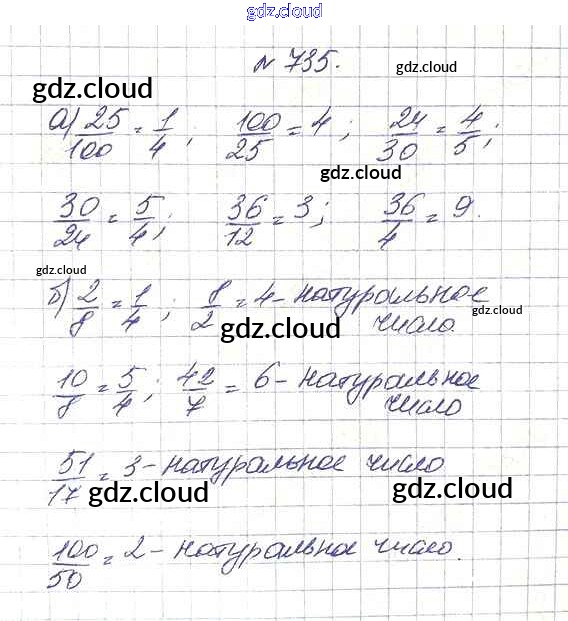 gdz.cloud
№ 735.
gdz.cloud
gdz.cloud
а) 25/100 = 1/4; 100/25 = 4; 24/30 = 4/5;
gdz.cloud
gdz.cloud
30/24 = 5/4; 36/12 = 3; 36/4 = 9.
gdz.cloud
gdz.cloud
б) 2/8 = 1/4; 8/2 = 4 - натуральное
число.
gdz.cloud
gdz.cloud
10/8 = 5/4; 42/7 = 6 - натуральное
число
51/17 = 3 - натуральное число
gdz.cloud
gdz.cloud
100/50 = 2 - натуральное число.
gdz.cloud